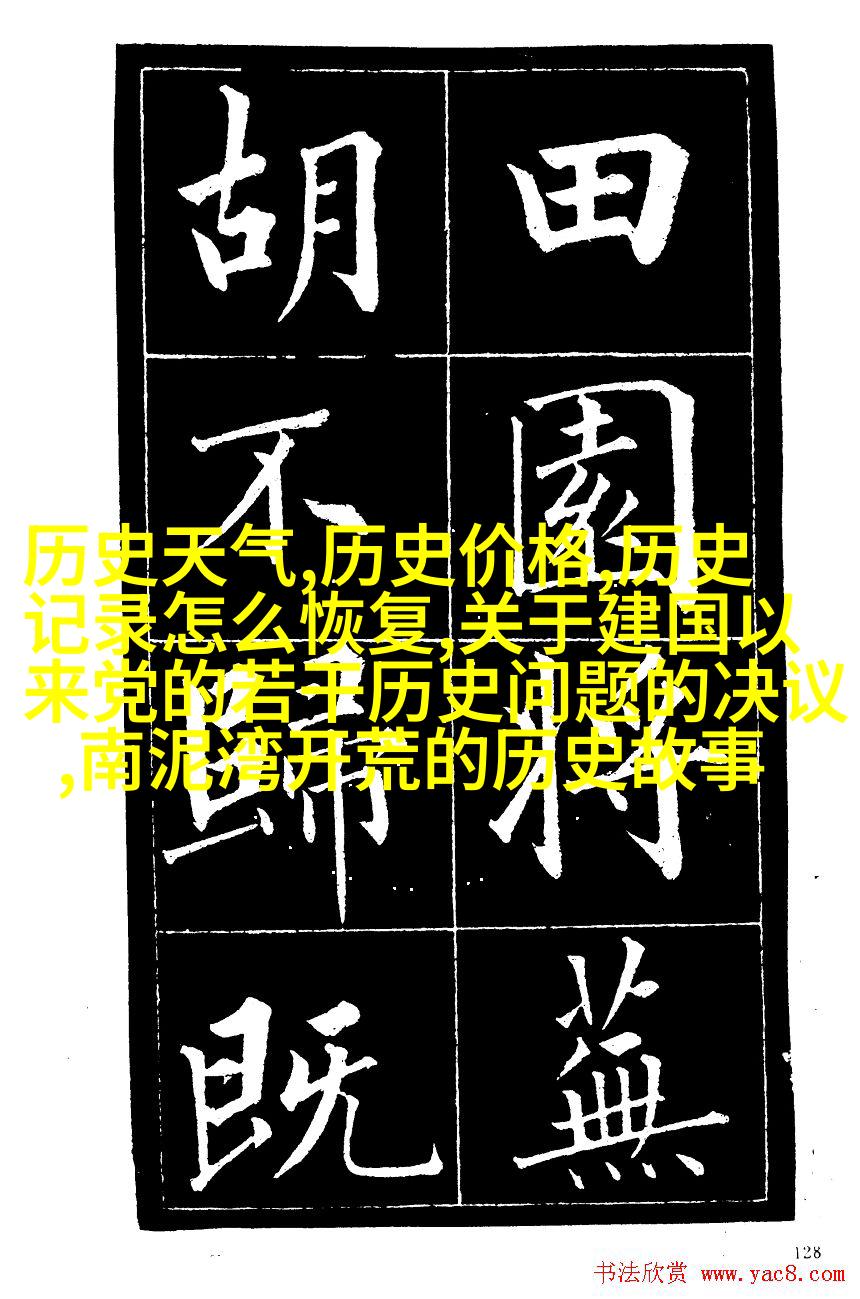 田園將蕪
胡不歸既
历史天气,历史价格,历史
记录怎么恢复,关于建国以
来党的若干历史问题的决议
,南泥湾开荒的历史故事
128
书法欣赏 www.yac8.com